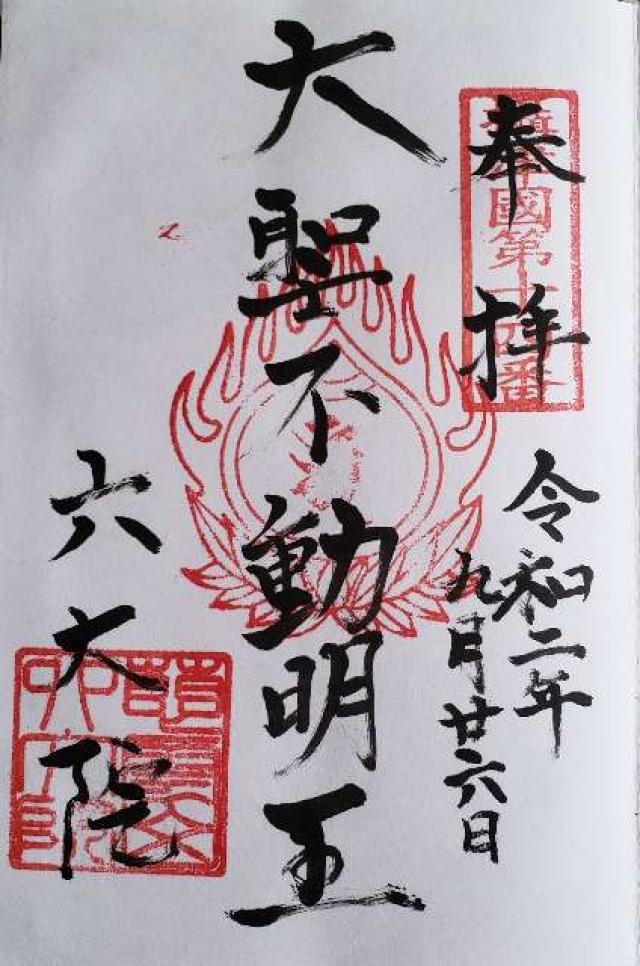 奉拝
國第十四番
令和二年
九月廿六日
大聖不動明王
六大院